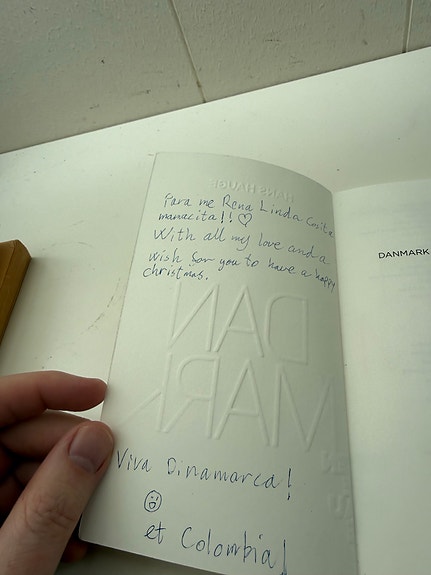 HANS HAUGE
Para me Rena Linda Cosita
mamacita!! ♡
With all my love and a
wish for you to have a happy
christmas.
DAN
MARK
Viva Dinamarca!
et Colombia!
DANMARK